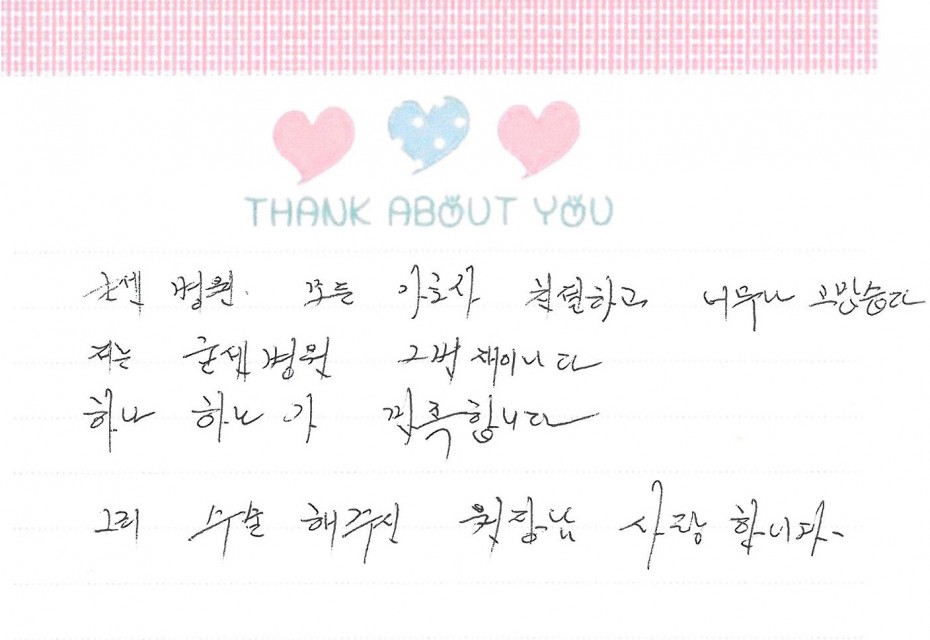 THANK ABOUT YOU
굳센 병원. 모든 가호사 친절하고 너무나 고맙습다
저는 굳센병원 그번째이니다
하나 하나가 만족합니다
그리 수술 해주신 원장님 사랑 합니다.